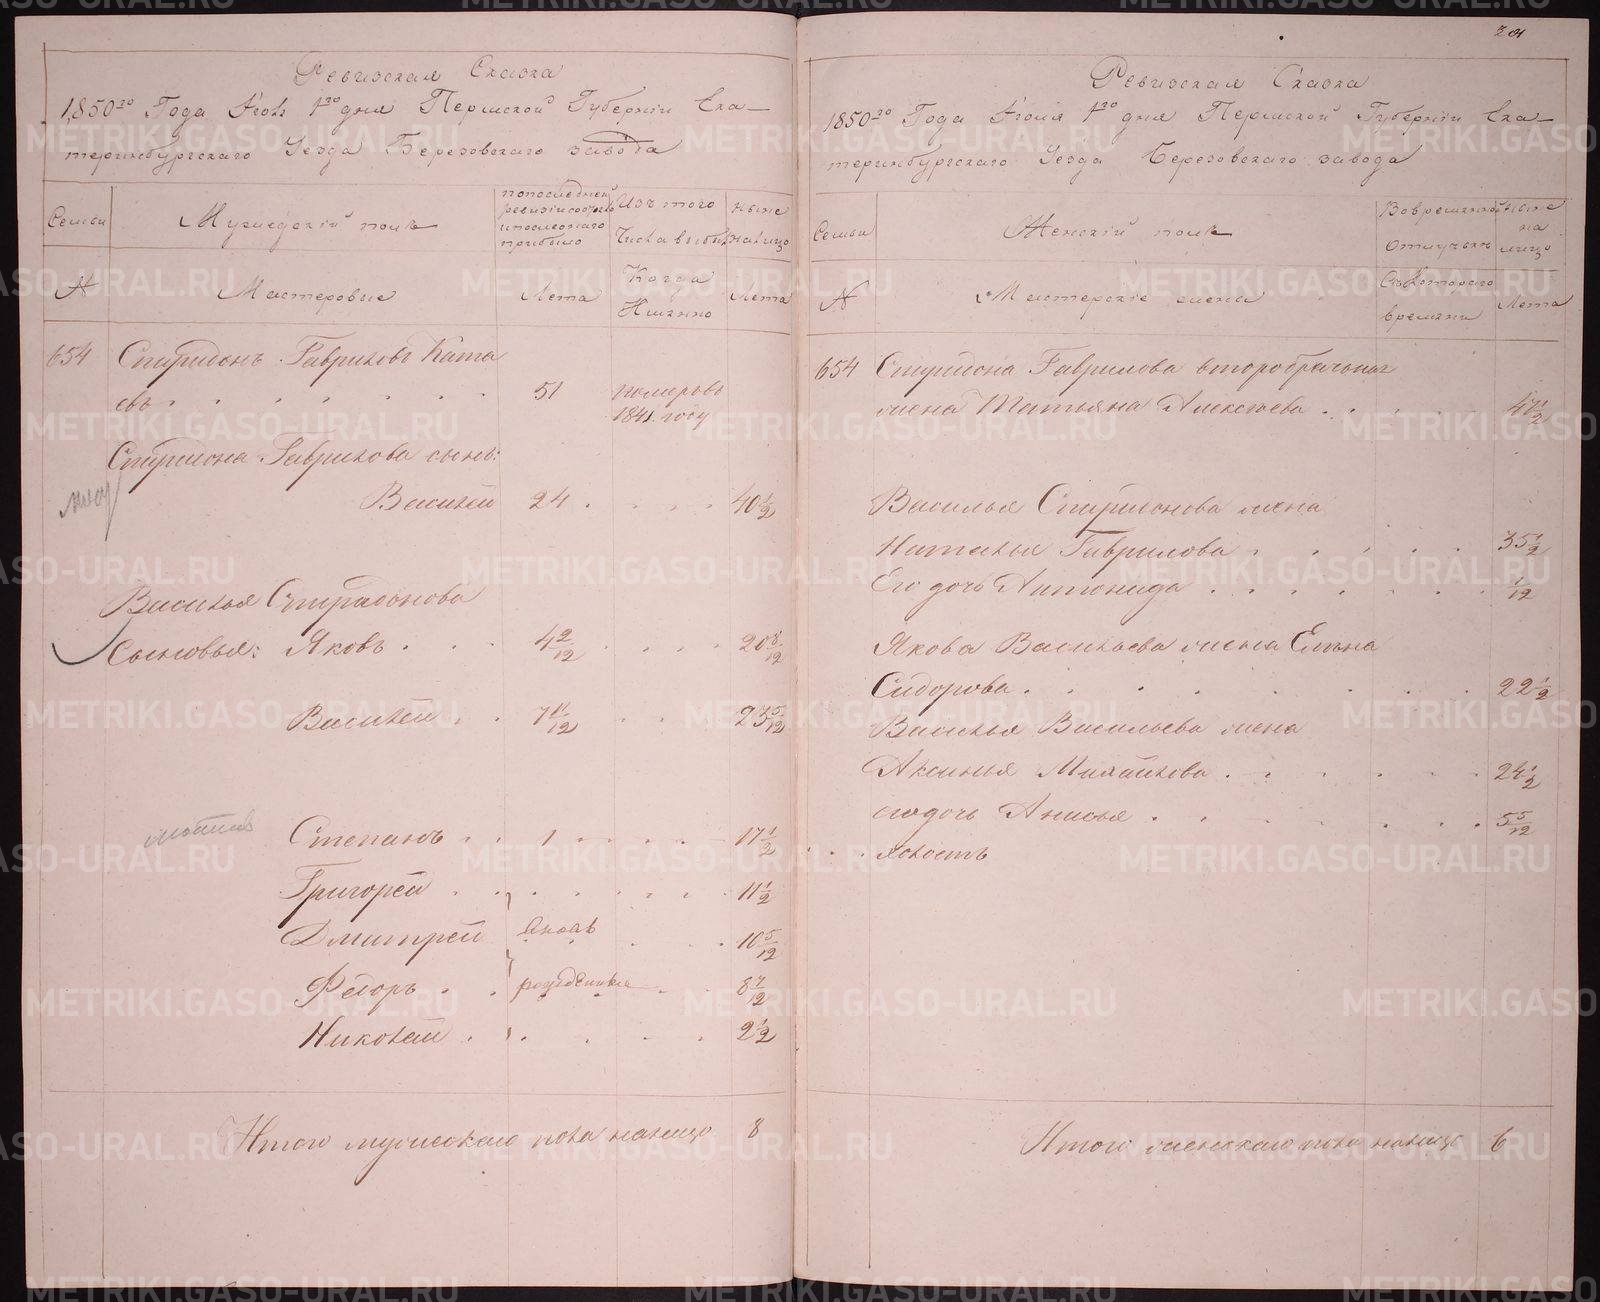 Ревизская Сказка
1850го Года Июля 1го дня Пермской Губернiи Ека–
теринбургскаго Уезда Березовскаго завода
Семьи
Мужеский полъ
по последней
ревизiи состояло
и после того
прибыло
Изъ того
Числа выбыло
ныне
налицо
№
Мастеровые
Лета
Когда
Имянно
Лета
654 Спиридонъ Гавриловъ Ката
евъ 51 померъ въ
1841 году
Спиридона Гаврилова сынъ:
Василей 24 40 1/2
Василья Спиридонова
Сыновья: Яковъ 4 2/12 20 8/12
Василей 7 11/12 23 5/12
Степанъ 1 17 1/2
Григорей 11 1/2
Дмитрей вновь 10 5/12
Федоръ рожденные 8 7/12
Николай 2 1/2
Итого мужескаго пола налицо 8
Ревизская Сказка
1850го Года Июля 1го дня Пермской Губернiи Ека–
теринбургскаго Уезда Березовскаго завода
Семьи
Женскiй полъ
Во временной
отлучке
ныне
на
лицо
№
Мастерскiе жены
Съ Котораго
времяни
Лета
654 Спиридона Гаврилова второбрачная
жена Татьяна Алексеева 47 1/2
Василья Спиридонова жена
Наталья Гаврилова 35 1/2
Его дочь Антонида 1/12
Якова Васильева жена Елена
Сидорова 22 1/2
Василья Васильева жена
Аксинья Михайлова 24 1/2
его дочь Анисья 5 5/12
Итого женскаго пола налицо 6
METRIKI.GASO-URAL.RU